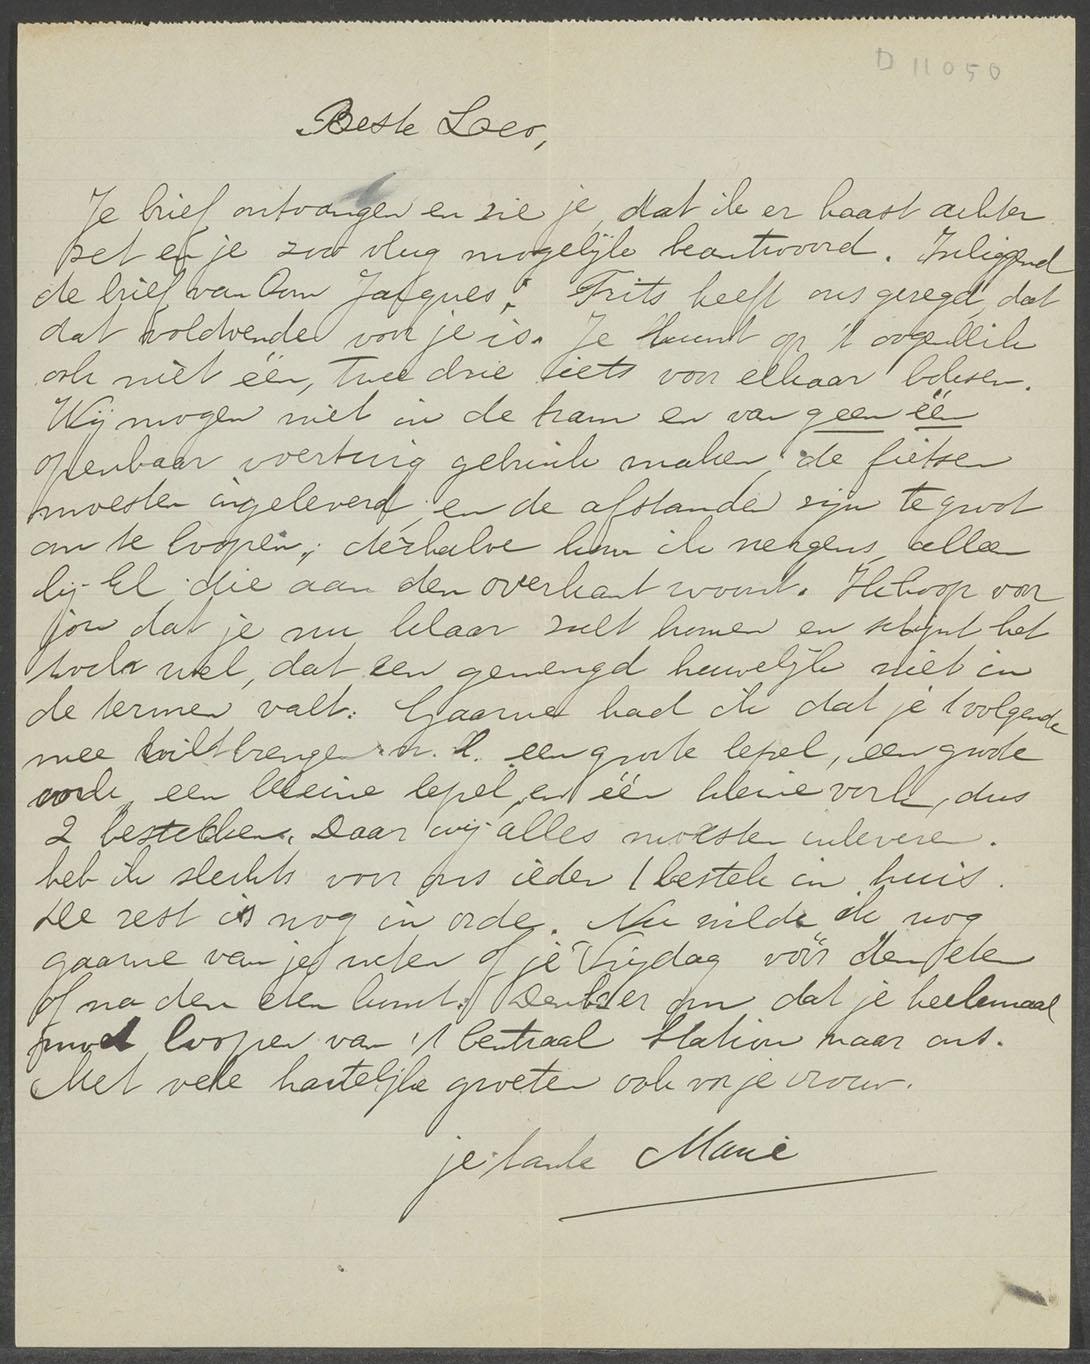 D 11050
Beste Leo,
Je brief ontvangen en zie je, dat ik er haast achter
zet en je zoo vlug mogelijk beantwoord. Inliggend
de brief van Oom Jacques. Frits heeft ons gezegd, dat
dat voldoende voor je is. Je kunt op 't oogenblik
ook niet één, twee drie iets voor elkaar boksen.
Wij mogen niet in de tram en van geen één
openbaar voertuig gebruik maken, de fietsen
moesten ingeleverd, en de afstanden zijn te groot
om te loopen, derhalve kom ik nergens, alleen
bij El die aan den overkant woont. Ik hoop voor
jou dat je nu klaar zult komen en schijnt het
toch wel, dat een gemengd huwelijk niet in
de termen valt. Gaarne had ik dat je 't volgende
mee wilt brengen n.l. een groote lepel, een groote
vork, een kleine lepel, en één kleine vork, dus
2 bestekken. Daar wij alles moesten inleveren.
heb ik slechts voor ons ieder 1 bestek in huis.
De rest is nog in orde. Nu wilde ik nog
gaarne van je weten of je Vrijdag vóór den eten
of na den eten komt. Denk er om dat je heelemaal
moet loopen van 't Centraal Station naar ons.
Met vele hartelijke groeten ook voor je vrouw.
je tante Marie